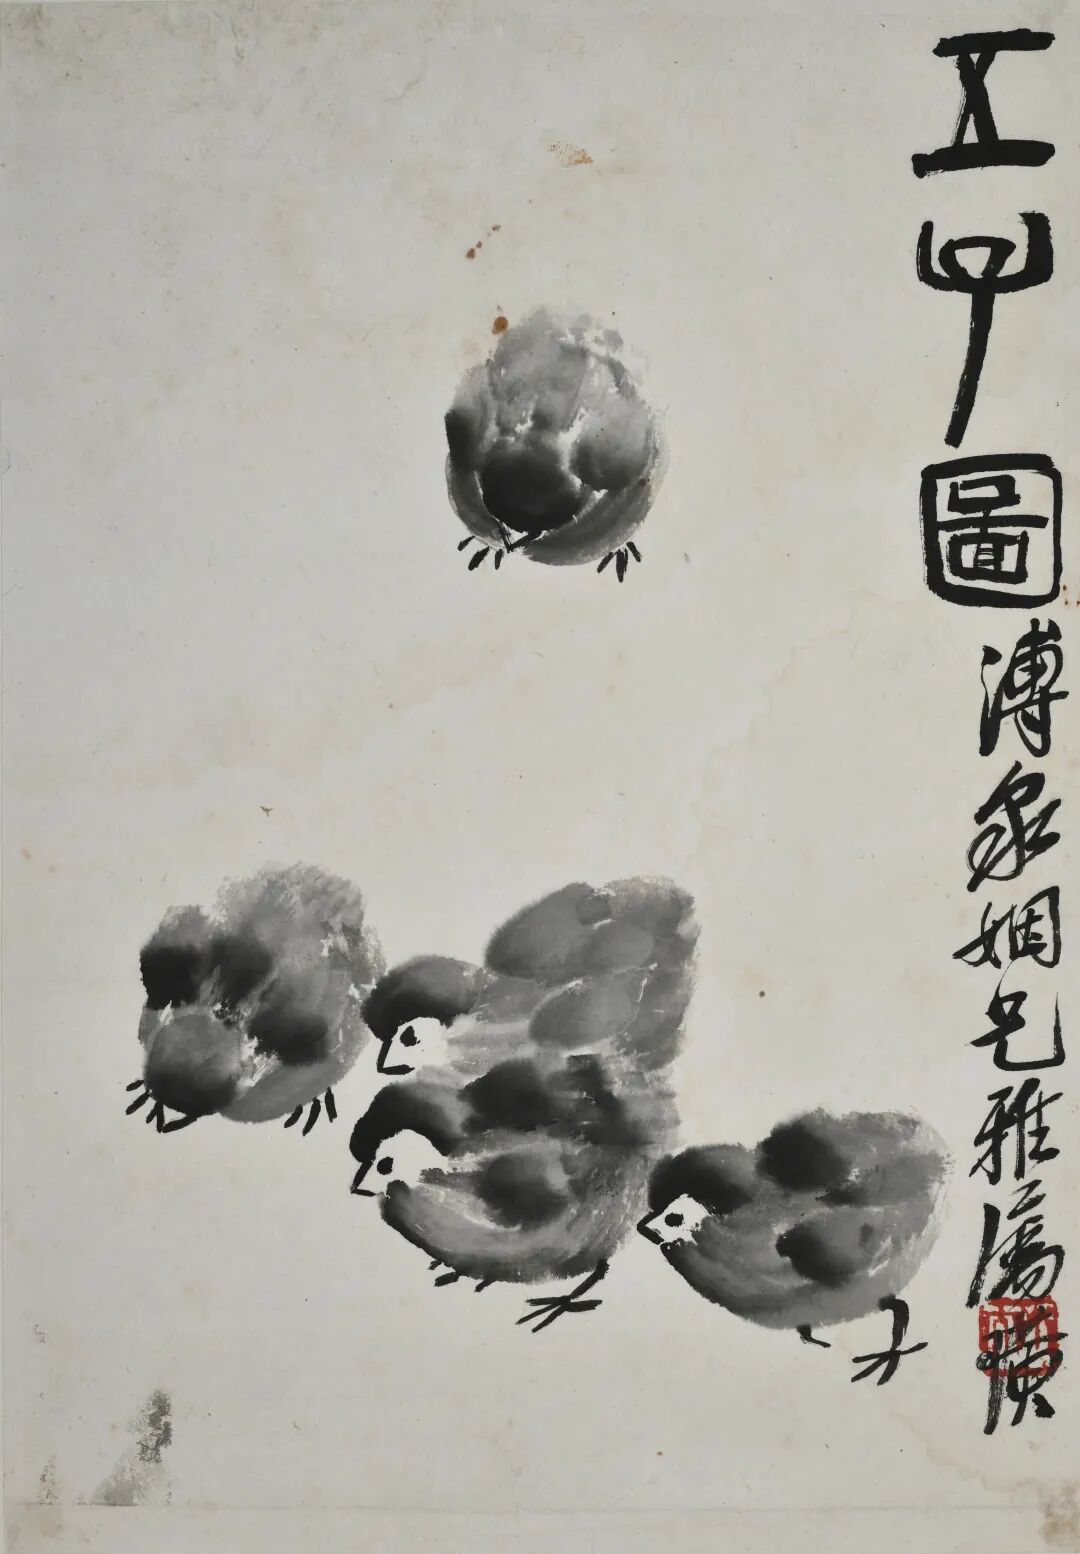 五子圖溥泉姻兄雅屬璜